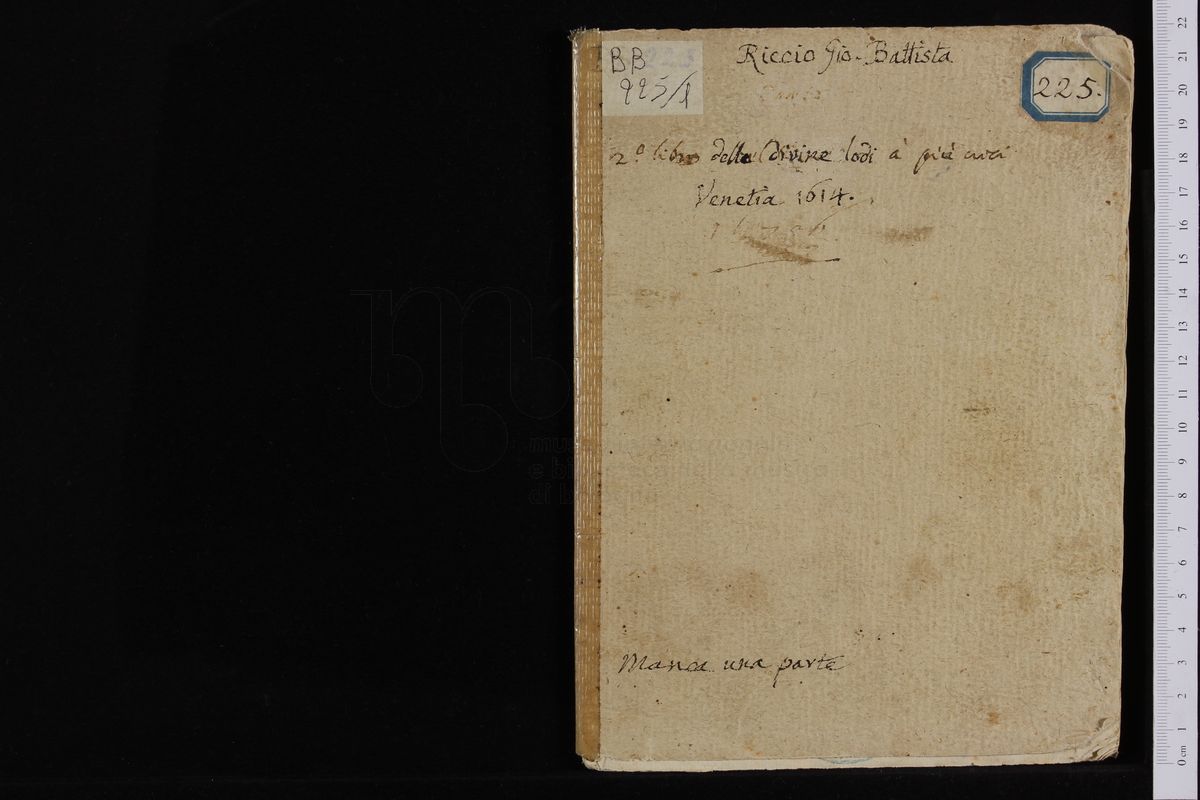 BB 225
225/1
Riccio Gio. Battista
225.
2.º libro delle Divine lodi à più
Venetia 1614.
Manca una parte
museo internazionale
e biblioteca della musica
di bologna
22
21
20
19
18
17
16
15
14
13
12
11
10
9
8
7
6
5
4
3
2
1
0 cm